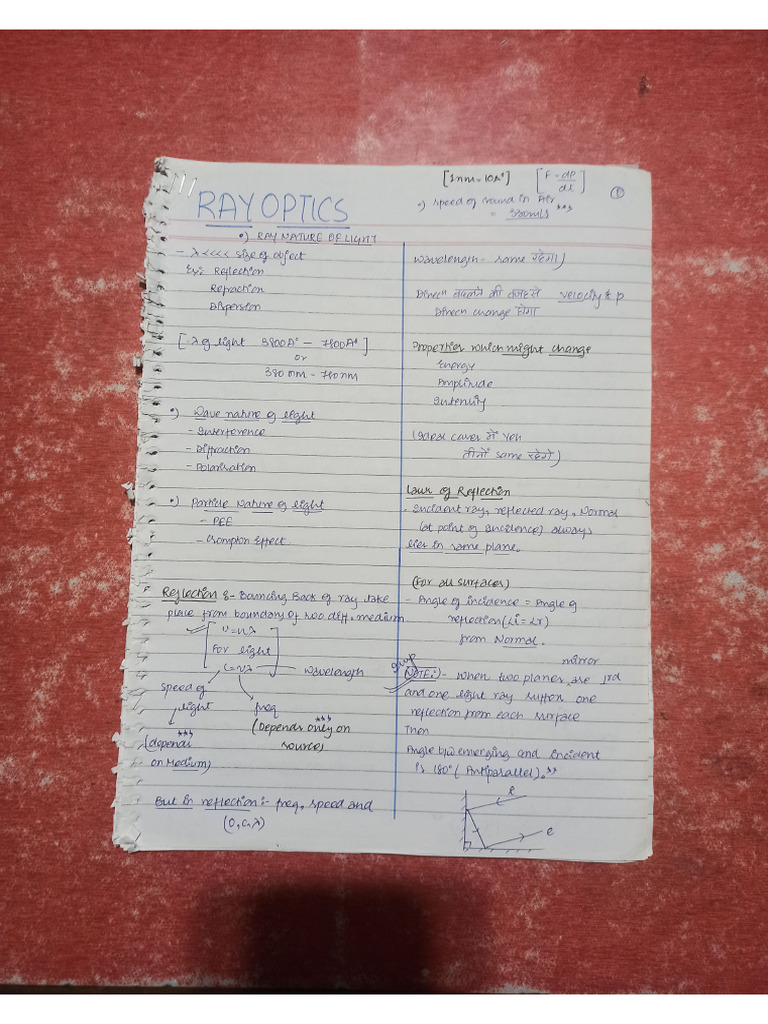 [1nm = 10A°] [F = dP/dt] ①
•) speed of sound in Air
= 330m/s ***
RAY OPTICS
•) RAY NATURE OF LIGHT
- λ <<<< size of object
Ex: Reflection
Refraction
Dispersion
[- λ of light 3800A° - 7800A°]
or
380nm - 780nm
•) Wave nature of light
- Interference
- Diffraction
- Polarisation
•) Particle Nature of light
- PEE
- Crompton Effect
Reflection :- Bouncing Back of ray take
place from boundary of two diff. medium
v = nλ
For light
C = νλ wavelength
speed of
light freq
(depends *** (Depends only on ***
on Medium) source)
But in reflection :- freq, speed and
(υ, c, λ)
wavelength - same रहेगा)
Direcn बदलने की वजह से velocity & p
Direcn change होगा
Properties which might change
Energy
Amplitude
Intensity
(Ideal cases में
तीनों same रहेंगे)
Laws of Reflection
. Incident ray, reflected ray, Normal
(at point of incidence) always
lies in same plane.
(For all surfaces)
- Angle of incidence = Angle of
reflection (∠i = ∠r)
from Normal.
mirror
NOTE:- when two planes are
and one light ray suffers one
reflection from each surface
Then
Angle b/w emerging and incident
is 180° (Antiparallel). **